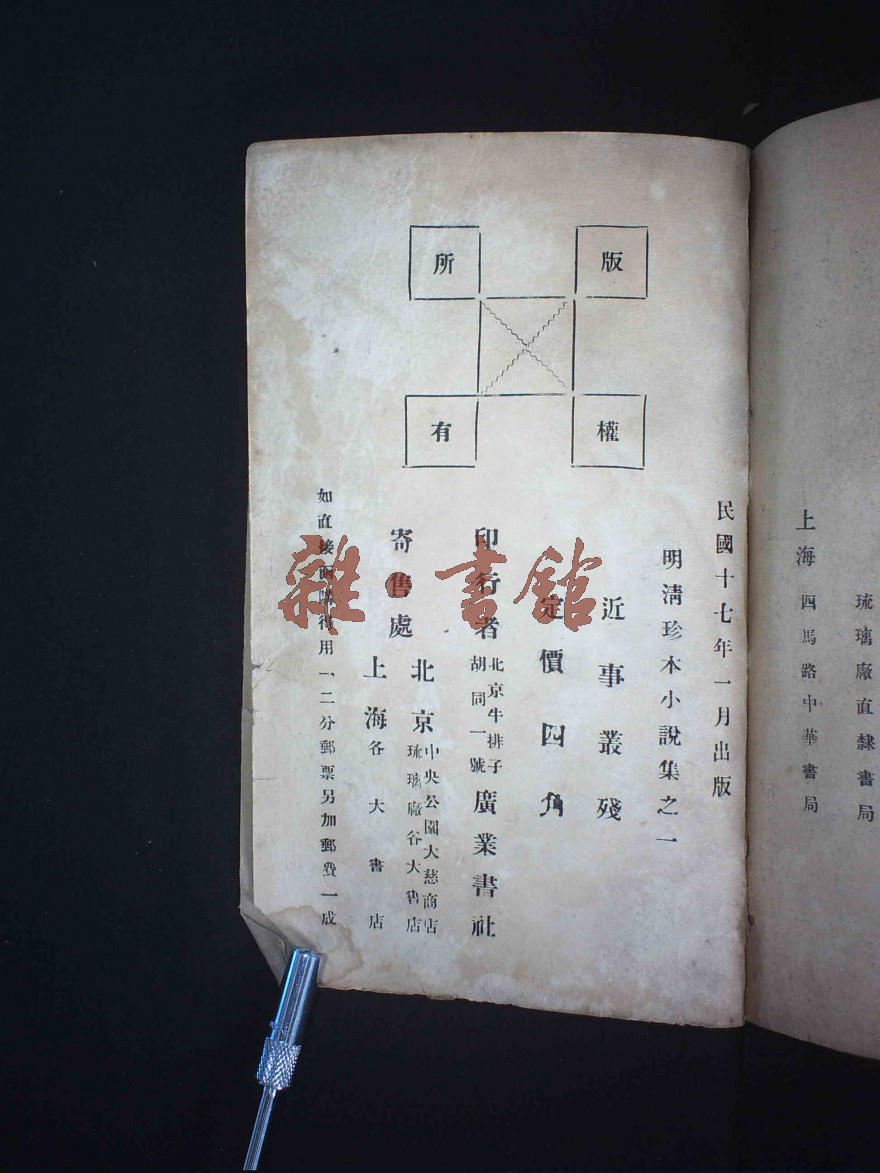 琉璃廠直隸書局
上海四馬路中華書局
版權所有
民國十七年一月出版
明清珍本小說集之一
近事叢殘
定價四角
印行者
北京牛排子
胡同一號
廣業書社
寄售處
北京
中央公園大慈商店
琉璃廠各大書店
上海各大書店
如直接函購得用一、二分郵票另加郵費一成
雜·書館